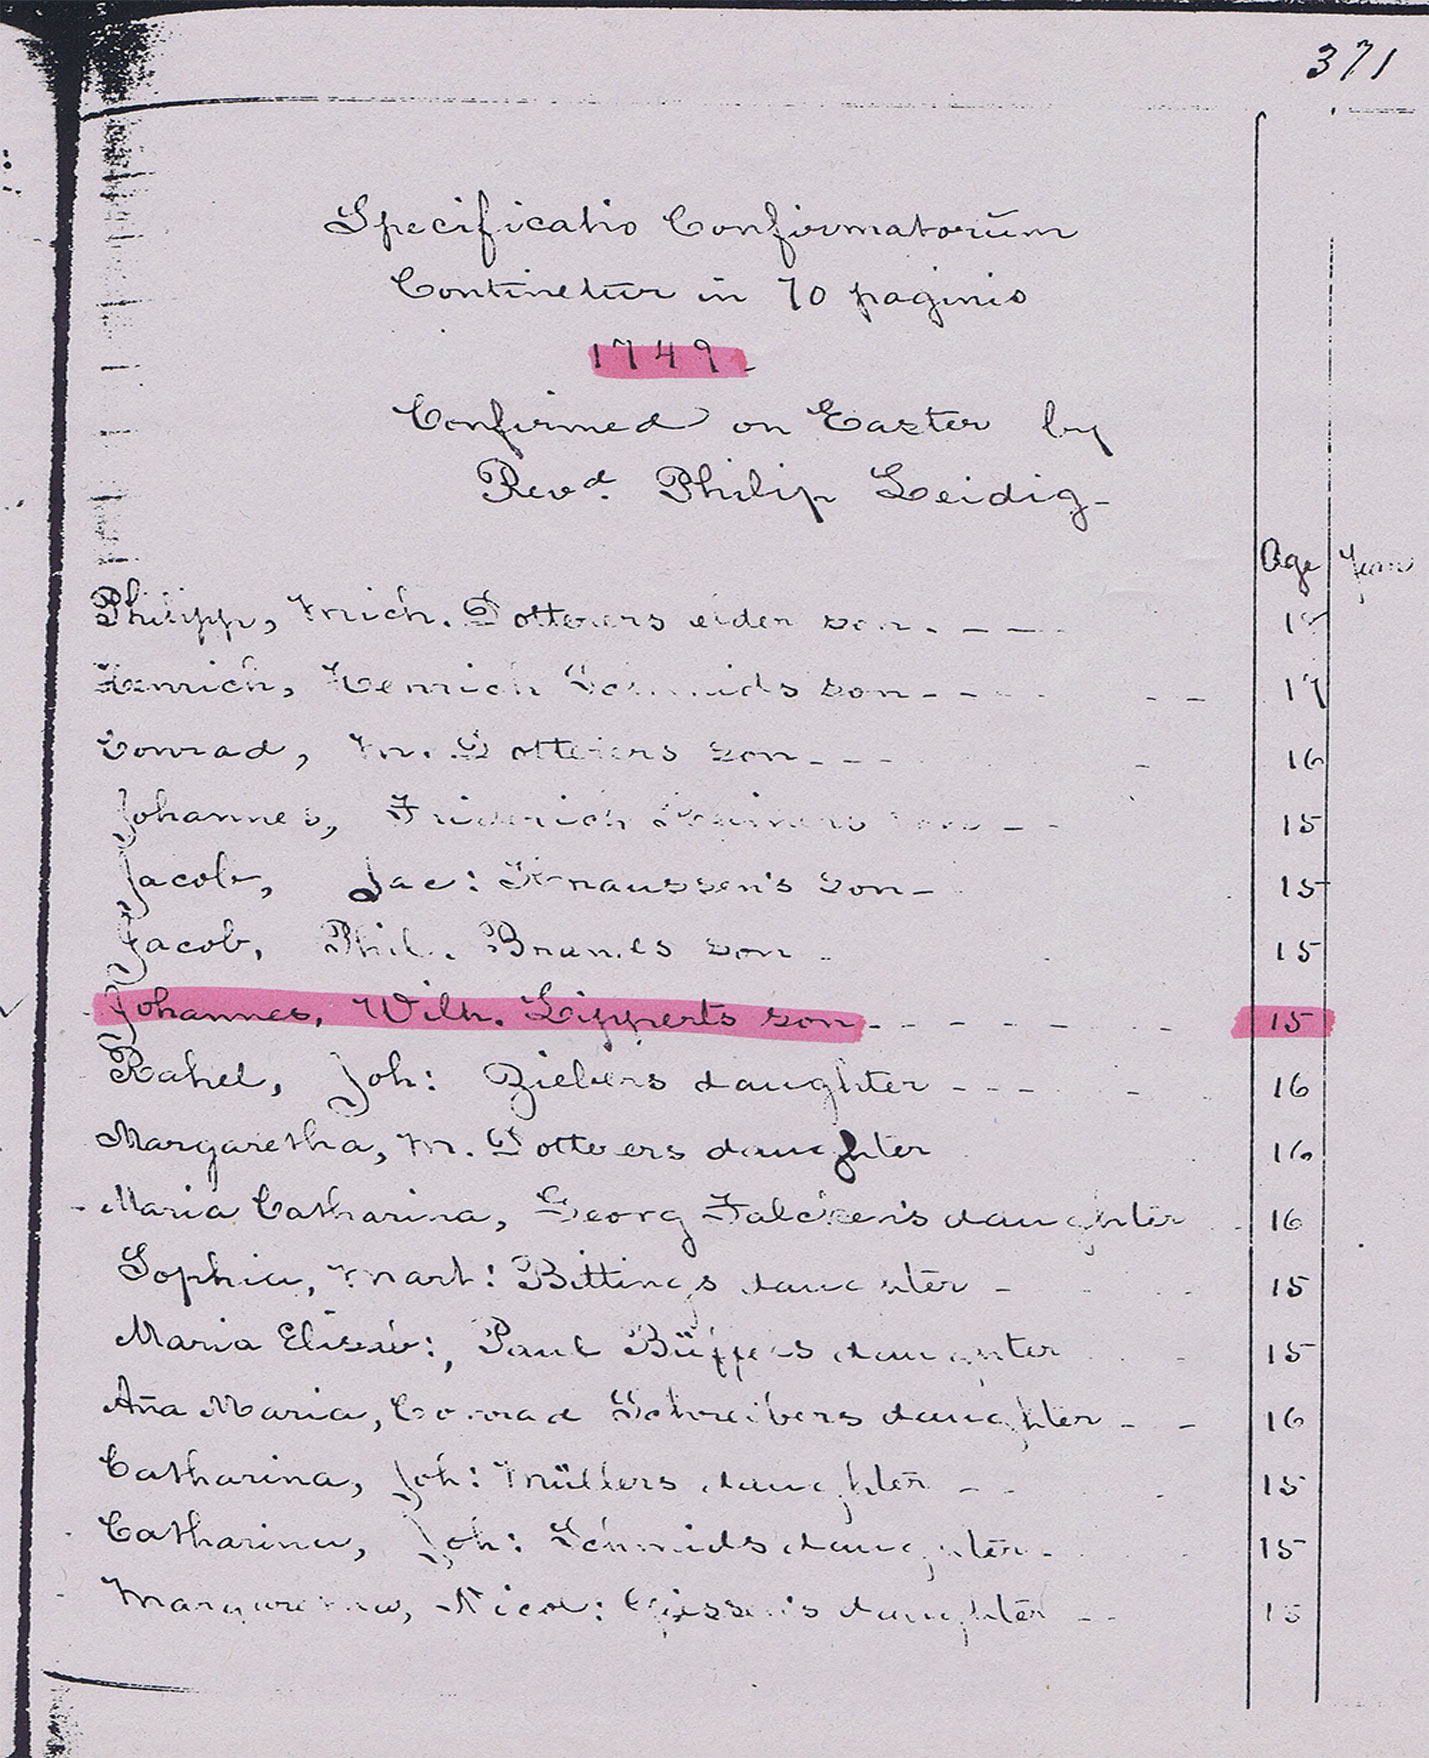 371
Specificatio Confirmatorum
Continetur in 70 paginis
1749
Confirmed on Easter by
Revd. Philip Leidig
Age Years
Philipp, Mich. Dotterers elder son
Henrich, Henrich Schmids son 17
Conrad, M. Dotterers son 16
Johannes, Friderich son 15
Jacob, Jac: Kraussen's son 15
Jacob, Phil. son 15
Johannes, Wilh. Lipperts son 15
Rahel, Joh: Ziebers daughter 16
Margaretha, M. Dotterers daughter 16
Maria Catharina, Georg Falcken's daughter 16
Sophia, Mart: Bittings daughter 15
Maria Elisab:, Paul daughter 15
Aña Maria, Conrad Schreibers daughter 16
Catharina, Joh: Müllers daughter 15
Catharina, Joh: Schmids daughter 15
Margaretha, Nicol: daughter 15